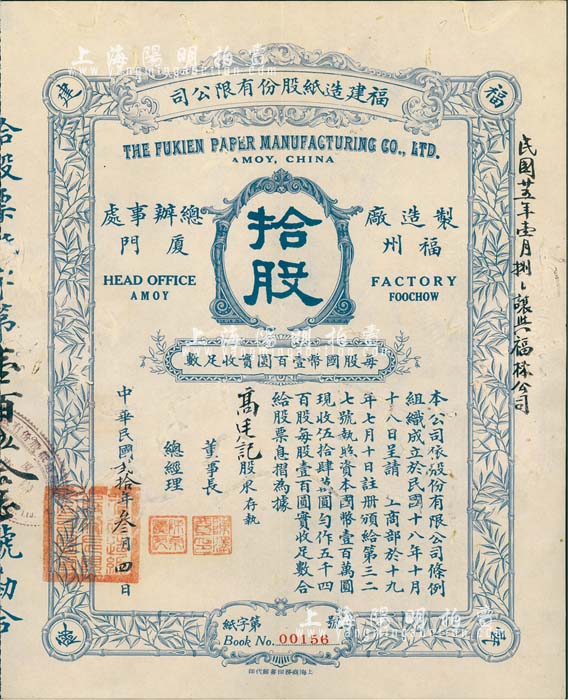 上海陽明拍賣
yangmingauction.com
福建造紙股份有限公司
福
建
THE FUKIEN PAPER MANUFACTURING CO., LTD.
AMOY, CHINA
製造廠
福州
FACTORY
FOOCHOW
拾股
總辦事處
厦門
HEAD OFFICE
AMOY
上海陽明拍賣
每股國幣壹百圓實收足數
本公司依股份有限公司條例
組織成立於民國十八年十月
十八日呈請 工商部於十九
年七月十日註册頒給第三二
七號執照資本國幣壹百萬圓
現收伍拾肆萬圓勻作五千四
百股每股壹百圓實收足數合
給股票息摺為據
股東存執
董事長
總經理
中華民國貳拾年叁月四日
紙字第 號
Book No. 00156
上海陽明拍賣
上海商務印書館代印
民國廿五年壹月捌日讓與福林公司